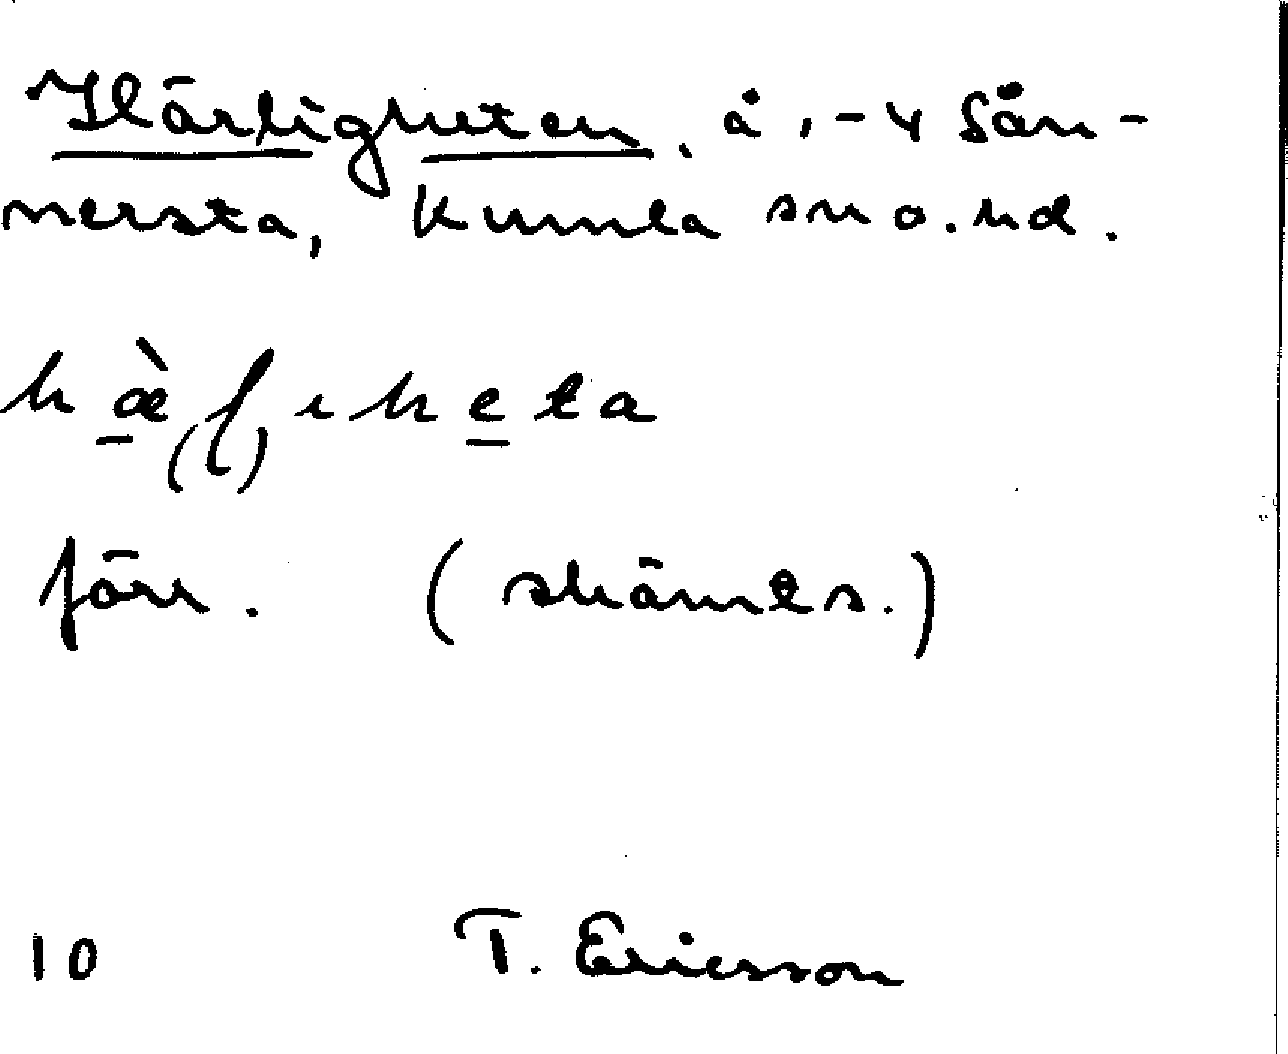 Härligheten, å, - 4 Sän-
nersta, Kumla sn o. hd.
hæ̀(l)iheta
förr. (skämts.)
10 T. Ericsson